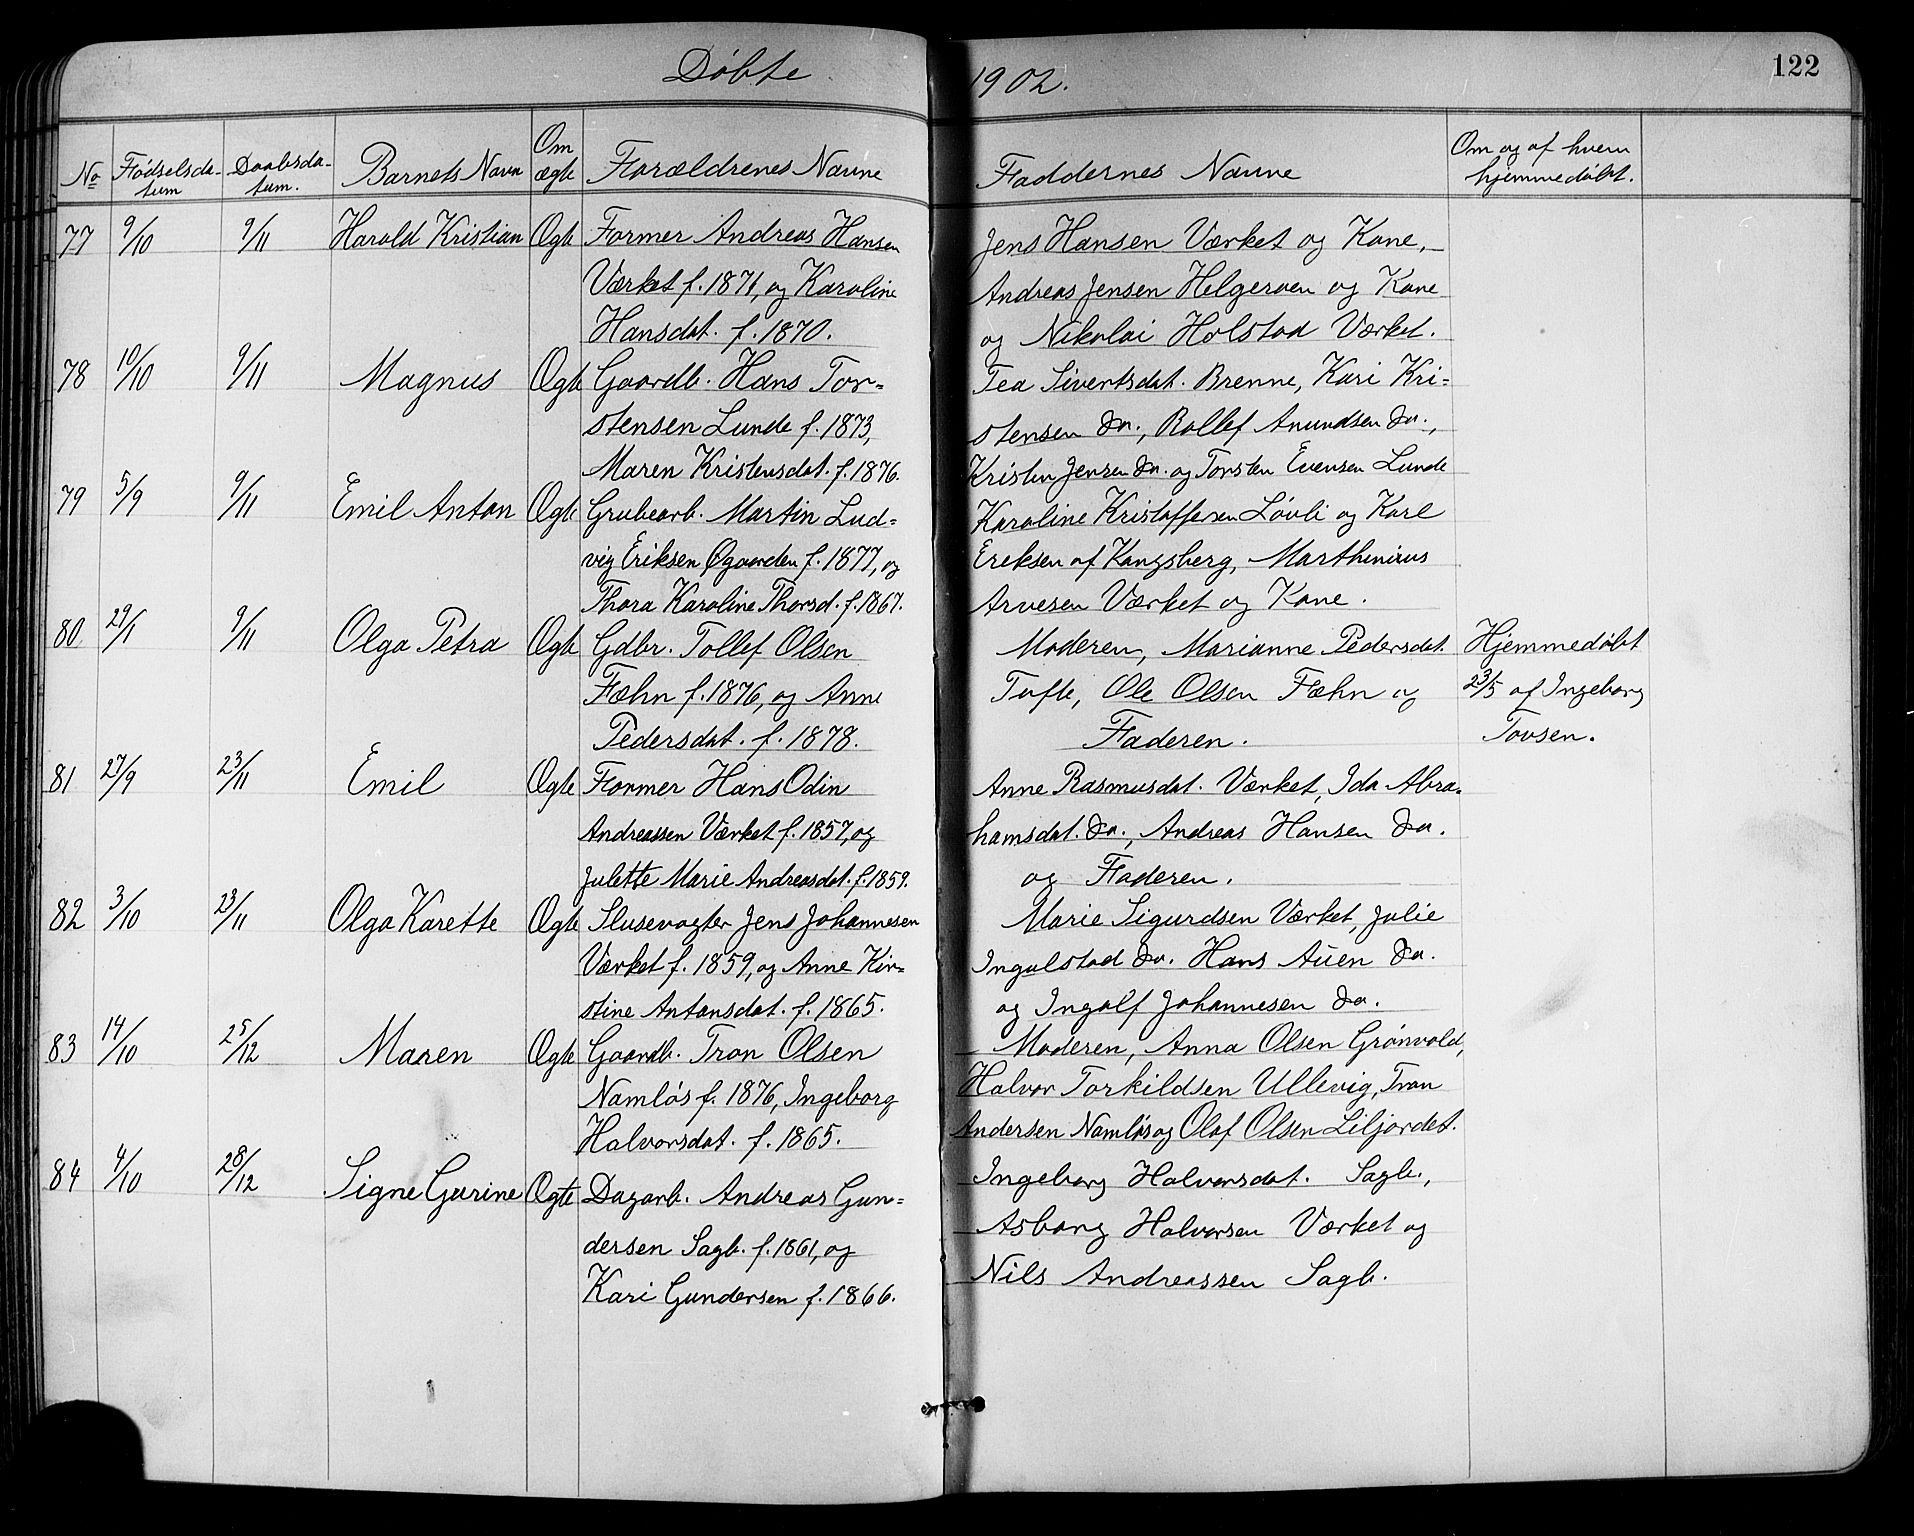 Døbte 1902.
122
No Fødselsdatum Daabsdatum. Barnets Navn Om ægte Forældrenes Navne Faddernes Navne Om og af hvem hjemmedøbt.
77 9/10 9/11 Harald Kristian Ægte Former Andreas Hansen
Værket f. 1871, og Karoline
Hansdat. f. 1870.
Jens Hansen Værket og Kone,
Andreas Jensen Helgeroen og Kone
og Nikolai Holstad Værket.
78 10/10 9/11 Magnus Ægte Gaardb. Hans Tor=
stensen Lunde f. 1873,
Maren Kristensdat. f. 1876.
Tea Sivertsdat. Brenne, Kari Kri=
stensen do., Rollef Anundsen do.,
Kristen Jensen do. og Torsten Evensen Lunde
79 5/9 9/11 Emil Anton Ægte Grubearb. Martin Lud=
vig Eriksen Øgaarden f. 1877, og
Thora Karoline Thorsd. f. 1867.
Karoline Kristoffersen Løvli og Karl
Ereksen af Kongsberg, Marthinius
Arvesen Værket og Kone.
80 29/1 9/11 Olga Petra Ægte Gdbr. Tollef Olsen
Fæhn f. 1876, og Anne
Pedersdat. f. 1878.
Moderen, Marianne Pedersdat.
Tufte, Ole Olsen Fæhn og
Faderen.
Hjemmedøbt
23/5 af Ingeborg
Tovsen.
81 27/9 23/11 Emil Ægte Former Hans Odin
Andreassen Værket f. 1857, og
Julette Marie Andreasdat. f. 1859.
Anne Rasmusdat. Værket, Ida Abra=
hamsdat. do., Andreas Hansen do.
og Faderen.
82 3/10 23/11 Olga Karette Ægte Slusevogter Jens Johannesen
Værket f. 1859, og Anne Kir=
stine Antonsdat. f. 1865.
Marie Sigurdsen Værket, Julie
Ingulstad do. Hans Auen do.
og Ingolf Johannesen do.
83 14/10 25/12 Maren Ægte Gaardb. Tron Olsen
Namløs f. 1876, Ingeborg
Halvorsdat. f. 1865.
Moderen, Anna Olsen Grønvold,
Halvor Torkildsen Ullevig, Tron
Andersen Namløs og Olaf Olsen Liljordet.
84 4/10 28/12 Signe Gurine Ægte Dagarb. Andreas Gun=
dersen Sagb. f. 1861, og
Kari Gundersen f. 1866.
Ingeborg Halvorsdat. Sagb.,
Asborg Halvorsen Værket og
Nils Andreassen Sagb.